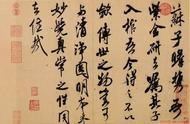 蘇子瞻携吾
紫金研去囑其子
入棺吾今得之不以
斂傳世之物豈可
與清淨圓明本來
妙覺真常之性同
去住哉